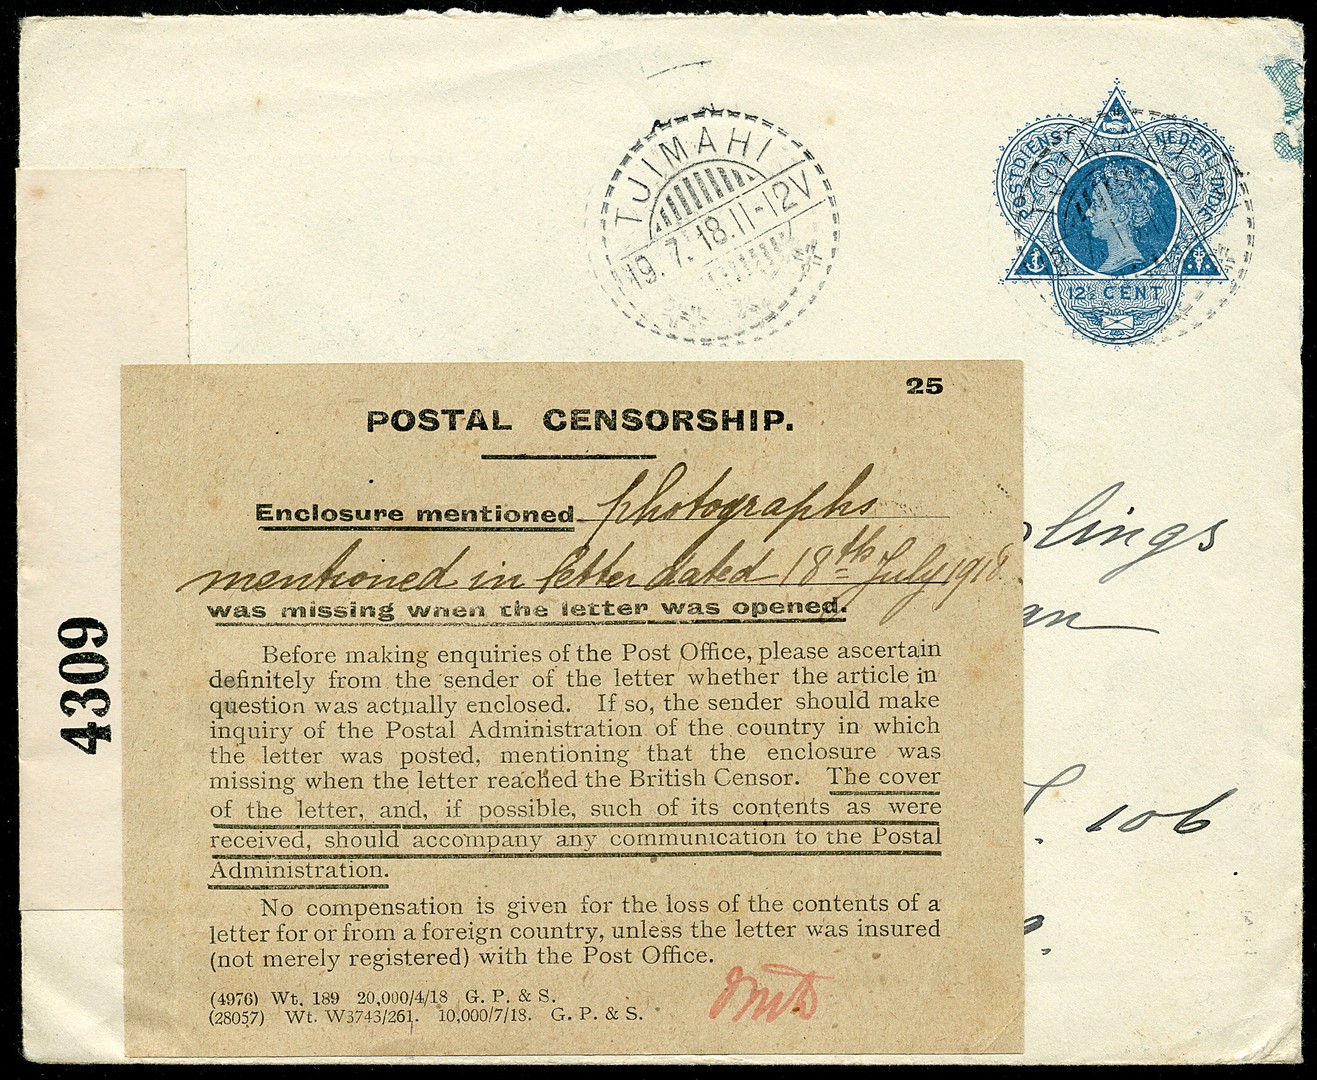 TJIMAHI
19.7.18.11-12V
POSTDIENST NEDERL.INDIE
12½ CENT
25
POSTAL CENSORSHIP.
Enclosure mentioned photographs
mentioned in letter dated 18th July 1918
was missing when the letter was opened.
Before making enquiries of the Post Office, please ascertain
definitely from the sender of the letter whether the article in
question was actually enclosed. If so, the sender should make
inquiry of the Postal Administration of the country in which
the letter was posted, mentioning that the enclosure was
missing when the letter reached the British Censor. The cover
of the letter, and, if possible, such of its contents as were
received, should accompany any communication to the Postal
Administration.
No compensation is given for the loss of the contents of a
letter for or from a foreign country, unless the letter was insured
(not merely registered) with the Post Office.
(4976) Wt. 189 20,000/4/18 G. P. & S.
(28057) Wt. W3743/261. 10,000/7/18. G. P. & S.
4309
lings
an
106